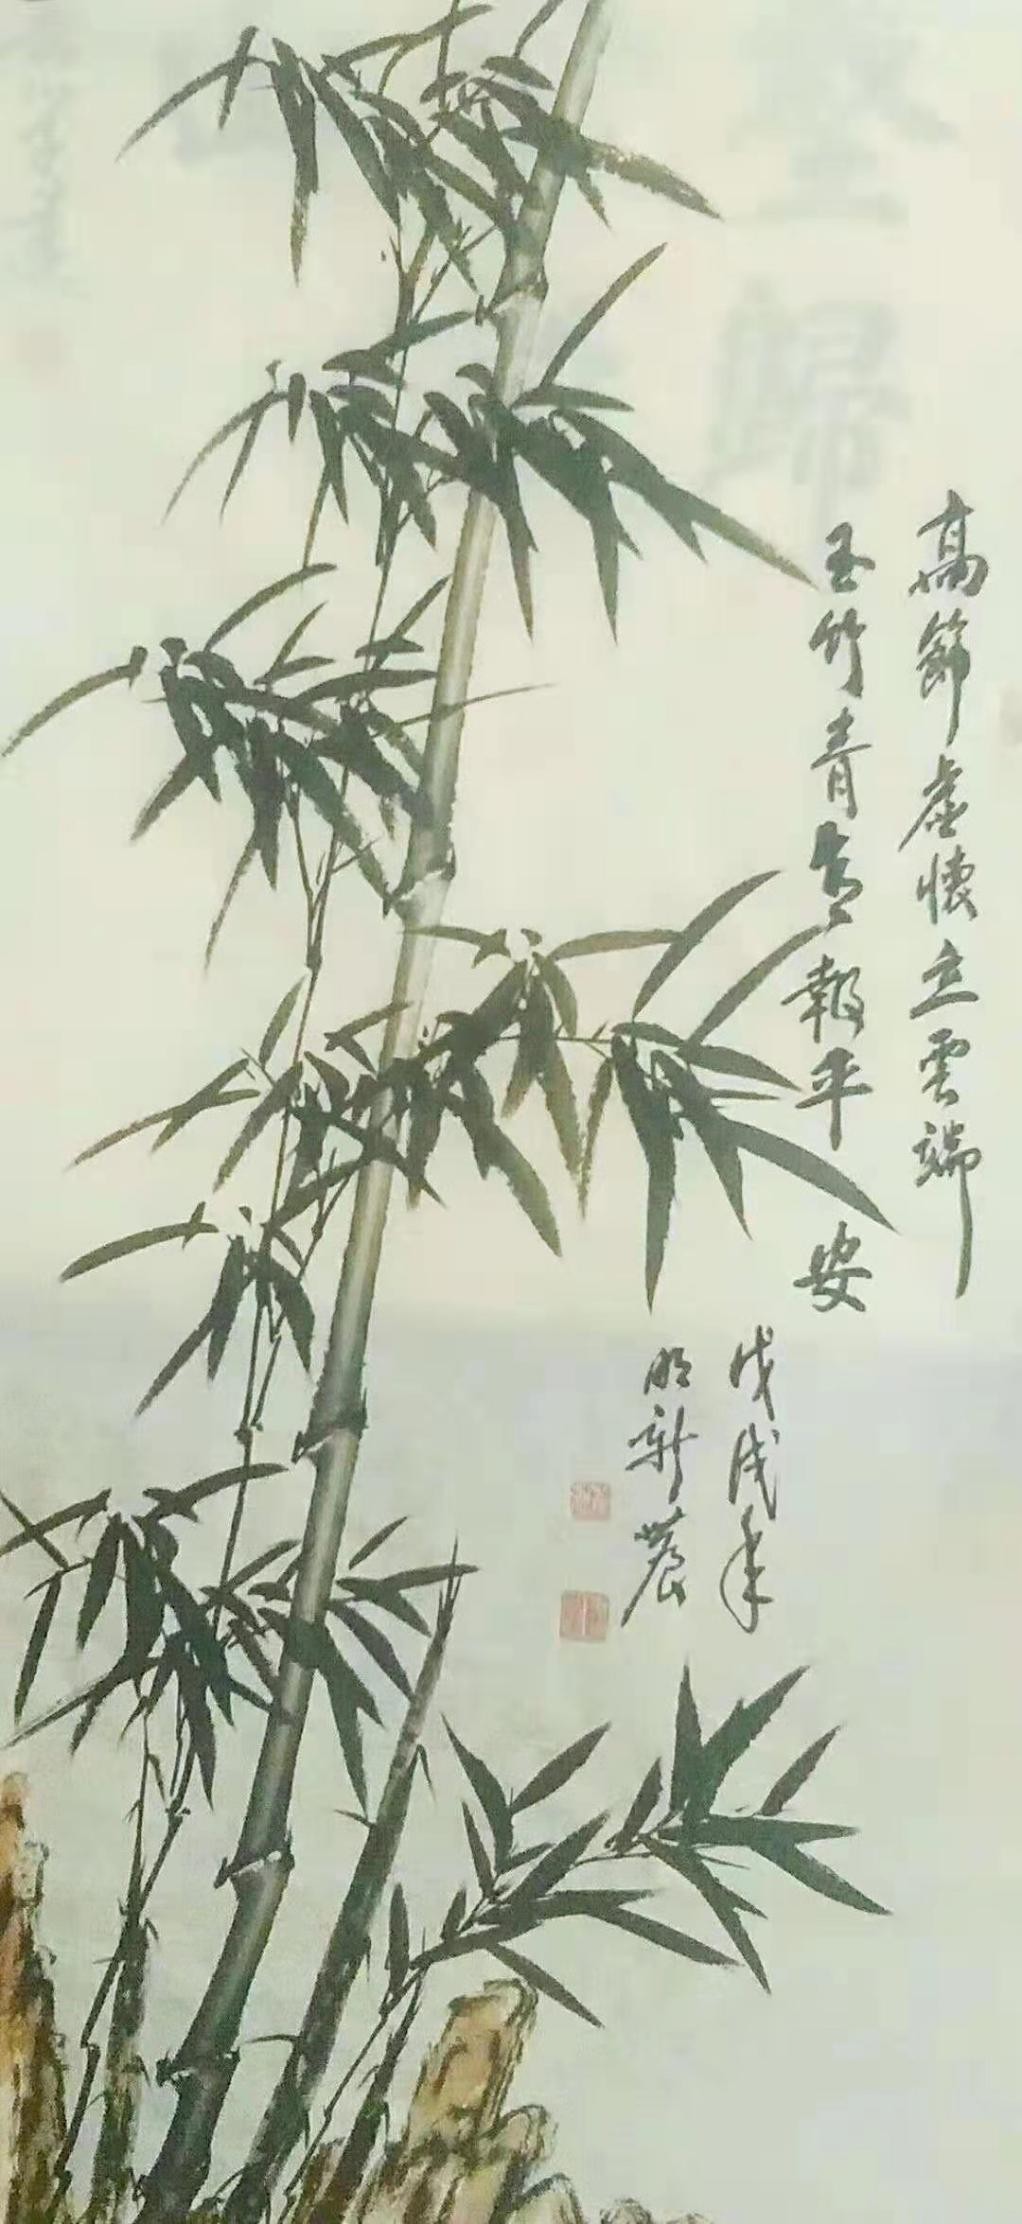 高節虛懷立雲端
玉竹青青報平安
戊戌年
明新農